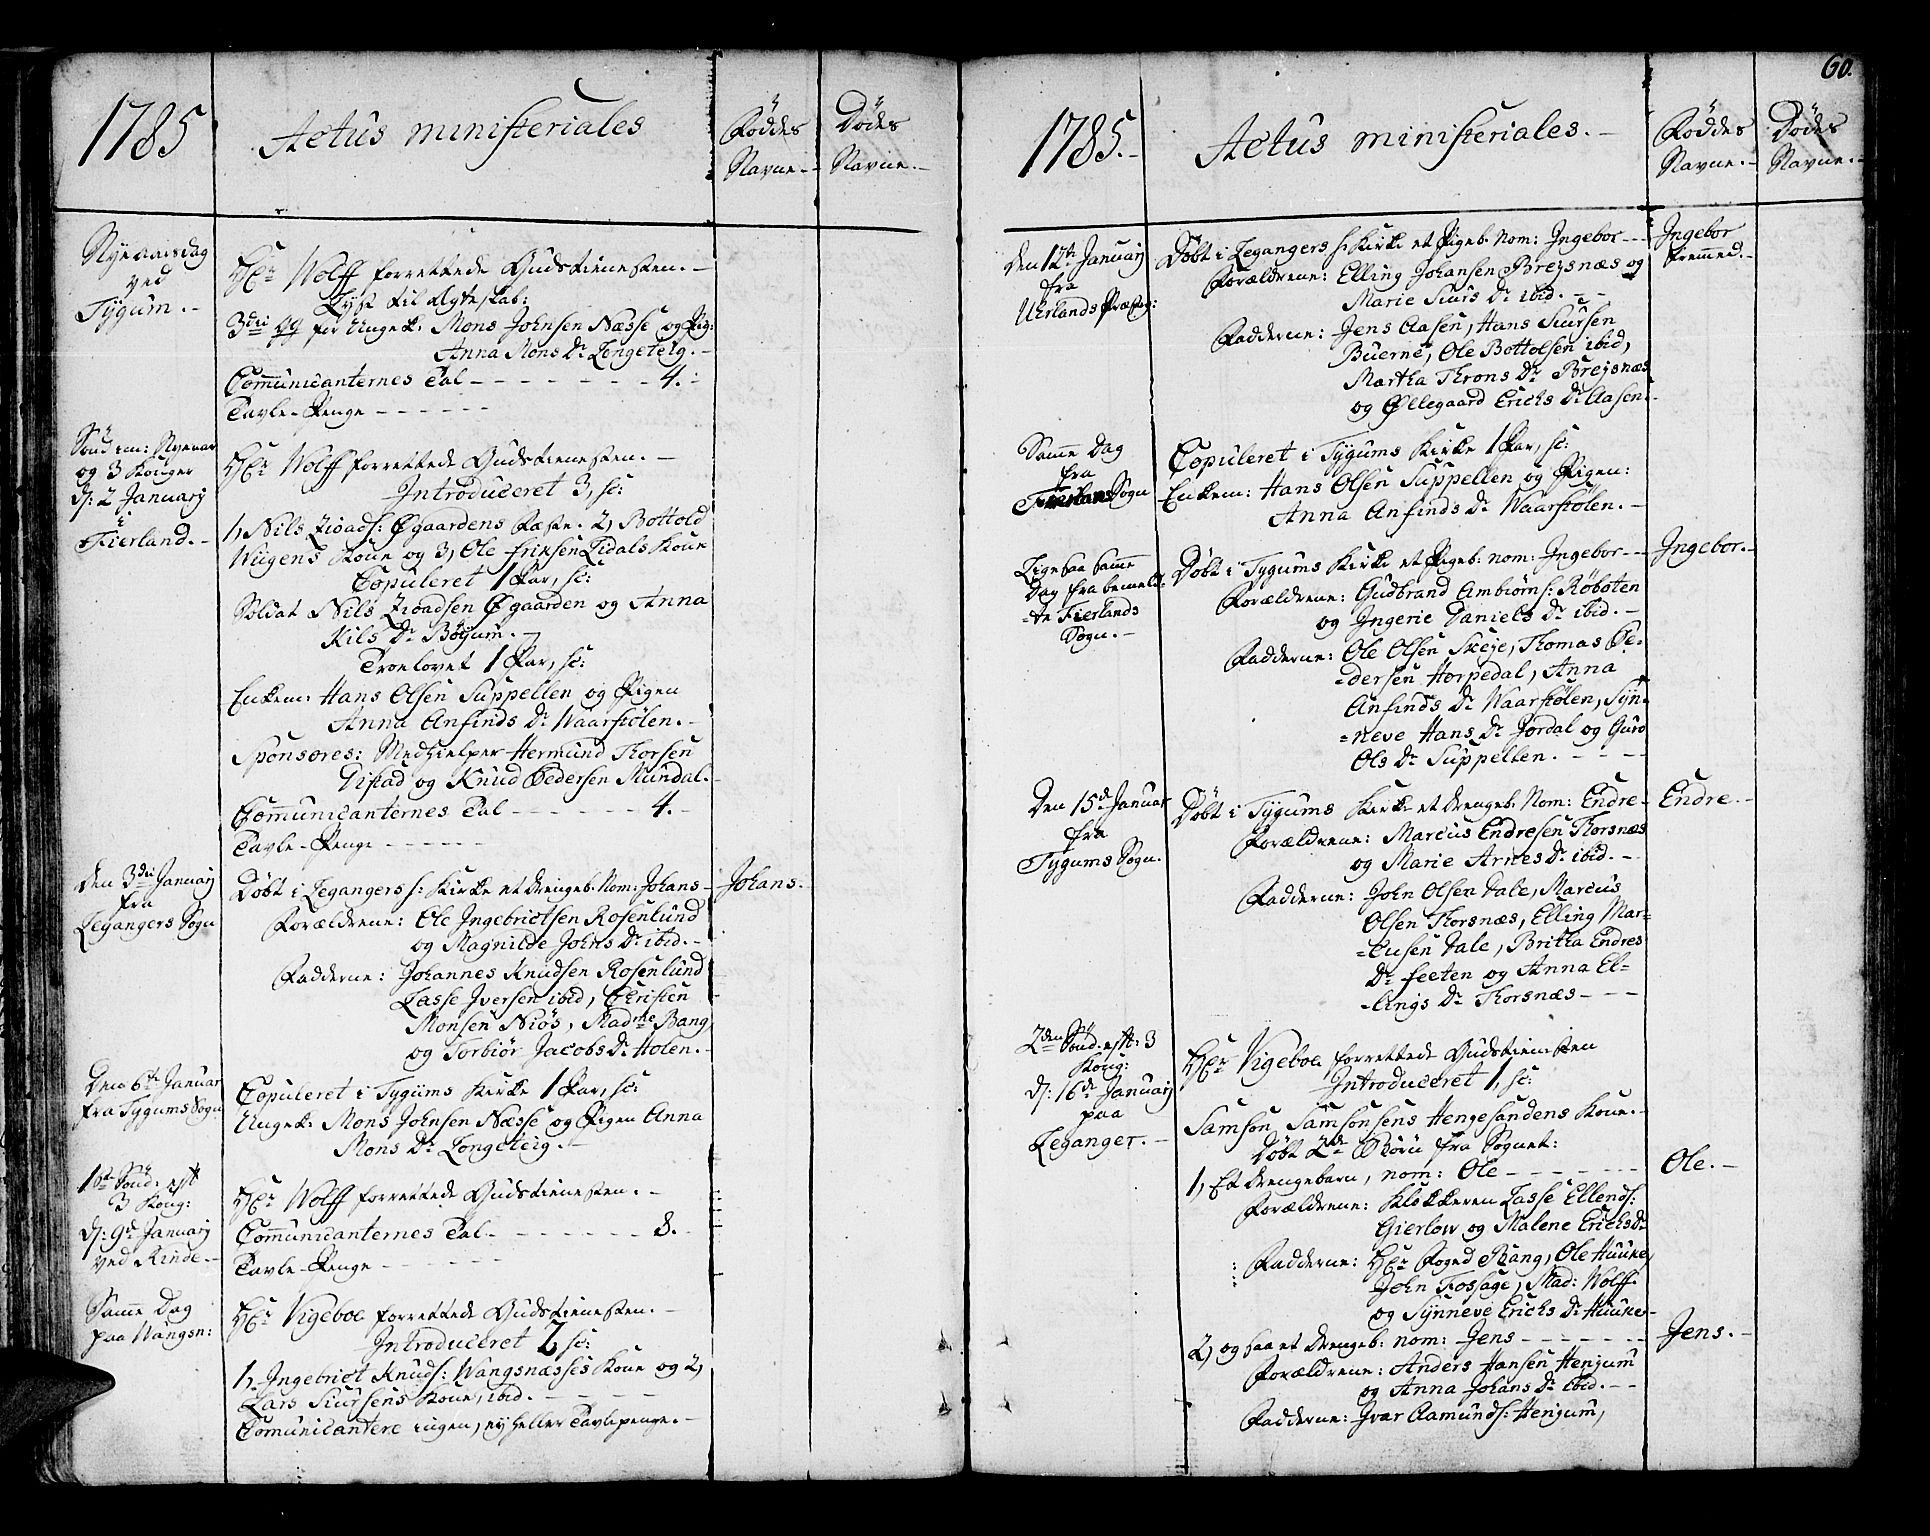 1785
Actus ministeriales
Föddes Navne.-
Dödes Navne.-
Nyeaarsdag
ved
Tygum.-
Hr. Wolff forrettede Gudstienesten.-
Lyst til Ægteskab:
3die gg for Ungek. Mons Johnsen Næsse og Pig:
Anna Mons Dr. Longeteig.-
Communicanternes Tal - - - - - - - 4.-
Tavle-Penge - - - - - -
Sönd. em: Nyeaar
og 3 Konger
d: 2 Januarij
i
Fierland.-
Hr. Wolff forrettede Gudstienesten.-
Introduceret 3, sc:
1, Nils Zioads: Øgaardens Fæste. 2, Bottold
Wiigens Kone og 3, Ole Eriksen Lidals Kone
Copuleret 1 Par, sc:
Soldat Nils Zioadsen Øgaarden og Anna
Nils Dr. Böyum.-
Troelovet 1 Par, sc:
Enkem: Hans Olsen Suppellen og Pigen
Anna Anfinds Dr. Waarstölen.-
Sponsores: Medhielper Hermund Thorsen
Gistad og Knud Pedersen Mundal.-
Communicanternes Tal - - - - - - - 4.-
Tavle-Penge - - - - - -
Den 3die Januarij
fra
Legangers Sogn
Döbt i Legangers s: Kirke et Drengeb. Nom: Johans-
Johans.-
Forældrene: Ole Ingebrictsen Rosenlund
og Magnilde Johns Dr. ibid.-
Fadderne: Johannes Knudsen Rosenlund
Lasse Iversen ibid, Christen
Monsen Niös, Madme Bang
og Torbiör Jacobs Dr. Holen.-
Den 6te Januar
fra Tygums Sogn
Copuleret i Tygums Kirke 1 Par, sc:
Ungek: Mons Johnsen Næsse og Pigen Anna
Mons Dr. Longeteig.-
1ste Sönd: eft
3 Kong:
d: 9de Januarij
ved Rinde.-
Hr. Wolff forrettede Gudstienesten.-
Communicanternes Tal - - - - - - - 8.-
Tavle-Penge - - - - - -
Samme Dag
paa Wangsn:
Hr. Vigeboe forrettede Gudstienesten.-
Introduceret 2 sc:
1, Ingebrict Knuds: Wangsnæsses Kone og 2,
Lars Siursens Kone, ibid. - - - - -
Comunicantere ingen, ej heller Tavlepenge.-
60.
1785.-
Actus ministeriales.-
Föddes Navne.-
Dödes Navne.-
Den 12te Januarij
fra
Uhrlands Præsteg:
Döbt i Legangers s: Kirke et Pigeb. Nom: Ingebor - - -
Ingebor
fremmed.-
Forældrene: Elling Johansen Breijsnæs og
Marie Siurs Dr. ibid. - -
Fadderne: Jens Aasen, Hans Siursen
Buerne, Ole Bottolsen ibid,
Martha Throns Dr. Breijsnæs
og Øllegaard Erichs Dr. Aasen.-
Samme Dag
fra
Fierlans Sogn
Copuleret i Tygums Kirke 1 Par, sc:
Enkem: Hans Olsen Suppellen og Pigen:
Anna Anfinds Dr. Waarstölen.-
Ligesaa Samme
Dag fra bemeld-
=te Fierlands
Sogn.-
Döbt i Tygums Kirke et Pigeb: nom: Ingebor - - -
Ingebor.-
Forældrene: Gudbrand Ambiörns: Röboten
og Ingerie Daniels Dr. ibid.-
Fadderne: Ole Olsen Skeje, Thomas Pe-
=dersen Horpedal, Anna
Anfinds Dr. Waarstölen, Syn-
=neve Hans Dr. Jordal og Guro
Ols Dr. Suppellen. - - - -
Den 15de Januar
fra
Tygums Sogn.
Döbt i Tygums Kirke et Drengeb: Nom: Endre-
Endre.-
Forældrene: Marcus Endresen Thorsnæs
og Marie Arnes Dr. ibid.-
Fadderne: John Olsen Dale, Marcus
Olsen Thorsnæs, Elling Mar=
=cusen Dale, Britha Endres
Dr. Feeten og Anna El=
=lings Dr. Thorsnæs - - -
2den Sönd. eft: 3
Kong:
d: 16de Januarij
paa
Leganger.-
Hr. Vigeboe forrettede Gudstienesten
Introduceret 1, sc:
Samson Samsonsens Hengesandens Kone.-
Döbt 2de Börn fra Sognet:
1, Et Drengebarn, nom: Ole - - - - - -
Ole.-
Forældrene: Klokkeren Lasse Ellends:
Gierlow og Malene Erichs Dr.
Fadderne: Hr. Foged Bang, Ole Huuke,
John Fossage, Mad: Wolff
og Synneve Erichs Dr. Huuke-
2, og saa et Drengeb: nom: Jens - - - - - -
Jens.-
Forældrene: Anders Hansen Henjum
og Anna Johans Dr. ibid. - -
Fadderne: Ivar Aamunds: Henjum,